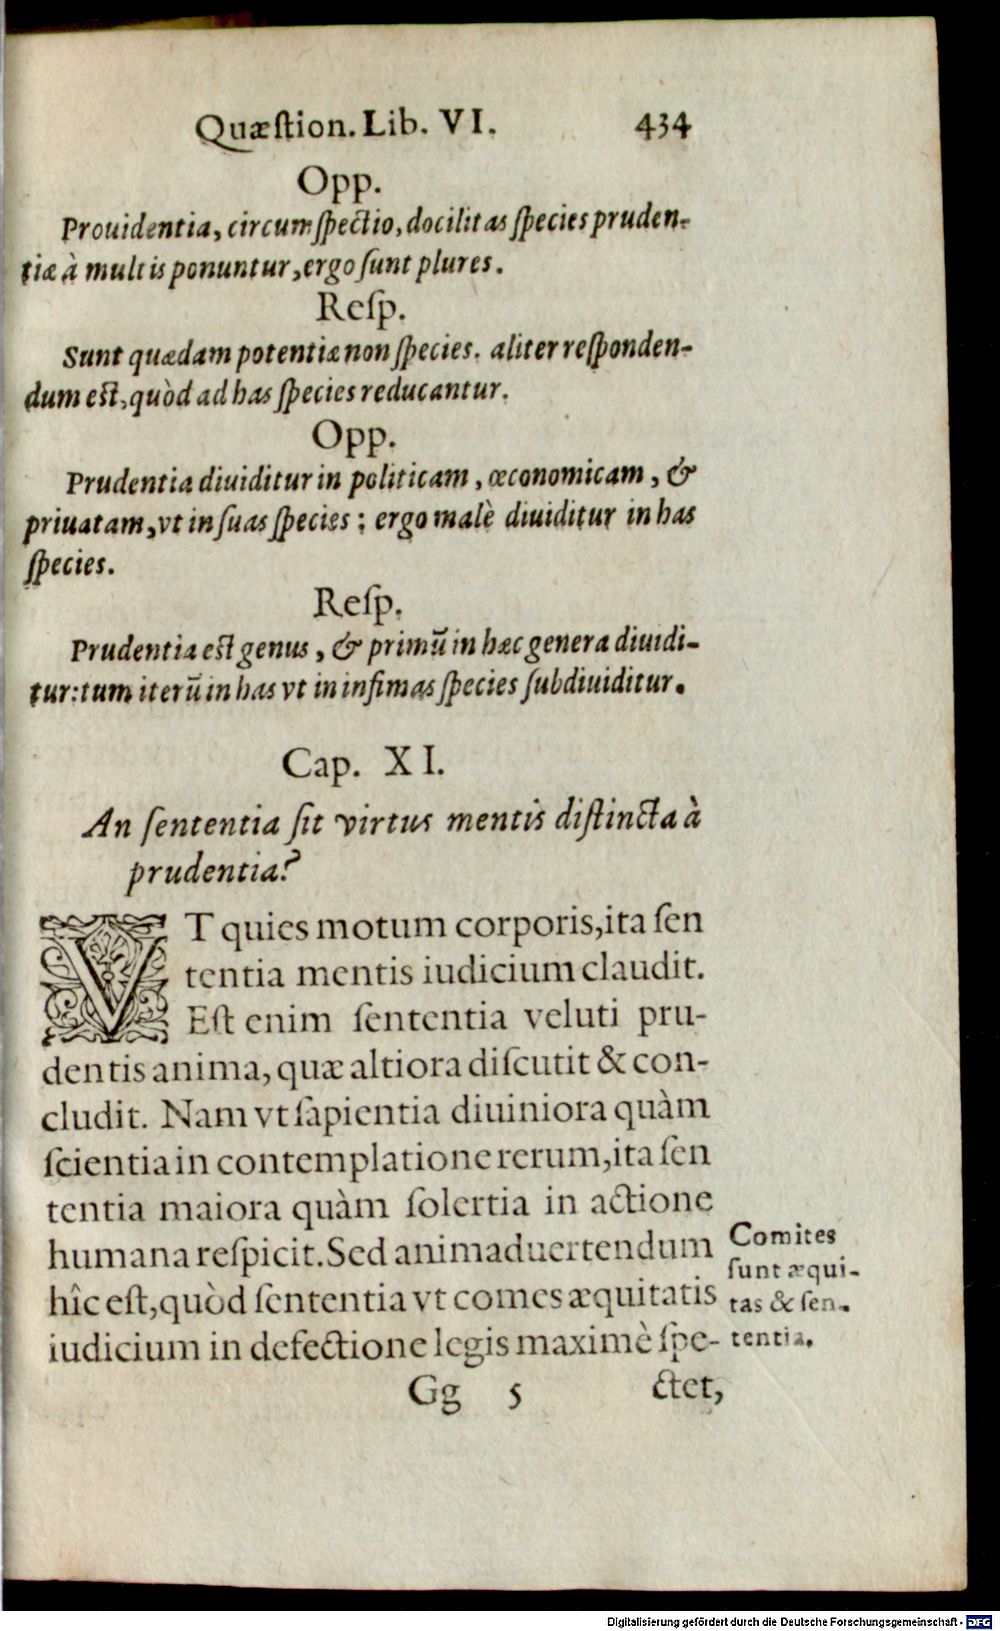 Quæſtion. Lib. VI. 434
Opp.
Prouidentia, circumſpectio, docilitas ſpecies pruden-
tiæ à multis ponuntur, ergo ſunt plures.
Reſp.
Sunt quædam potentiæ non ſpecies. aliter reſponden-
dum eſt, quòd ad has ſpecies reducantur.
Opp.
Prudentia diuiditur in politicam, œconomicam, &
priuatam, vt in ſuas ſpecies; ergo malè diuiditur in has
ſpecies.
Reſp.
Prudentia eſt genus, & primū in hæc genera diuidi-
tur: tum iterū in has vt in infimas ſpecies ſubdiuiditur.
Cap. XI.
An ſententia ſit virtus mentis diſtincta à
prudentia?
VT quies motum corporis, ita ſen
tentia mentis iudicium claudit.
Eſt enim ſententia veluti pru-
dentis anima, quæ altiora diſcutit & con-
cludit. Nam vt ſapientia diuiniora quàm
ſcientia in contemplatione rerum, ita ſen
tentia maiora quàm ſolertia in actione
humana reſpicit. Sed animaduertendum
hîc eſt, quòd ſententia vt comes æquitatis
iudicium in defectione legis maximè ſpe-
Comites
ſunt æqui-
tas & ſen-
tentia.
Gg 5 ctet,
Digitalisierung gefördert durch die Deutsche Forschungsgemeinschaft - DFG